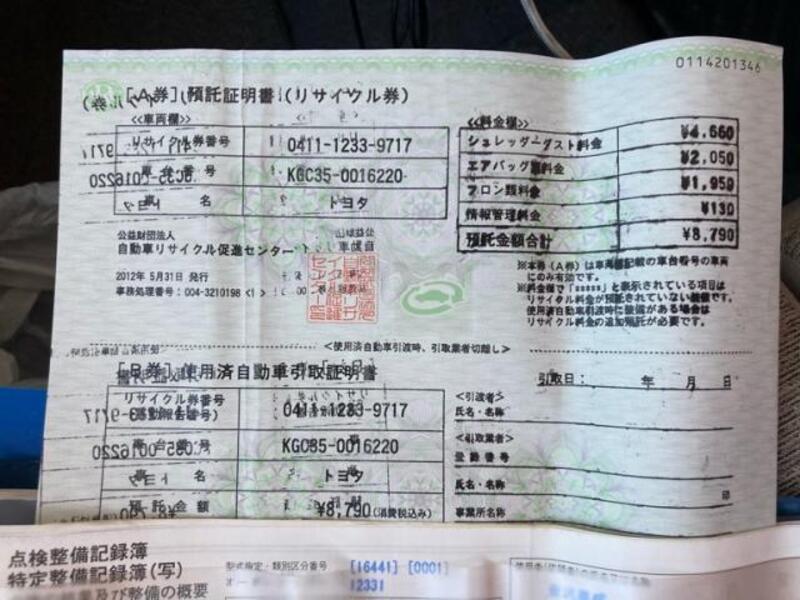 0114201346
[A券] 預託証明書 (リサイクル券)
<車両欄>
リサイクル券番号 0411-1233-9717
車台番号 KGC35-0016220
車名 トヨタ
公益財団法人
自動車リサイクル促進センター
2012年 5月31日 発行
事務処理番号：004-3210198
<料金欄>
シュレッダーダスト料金 ¥4,660
エアバッグ類料金 ¥2,050
フロン類料金 ¥1,950
情報管理料金 ¥130
預託金額合計 ¥8,790
※本券（A券）は車両欄記載の車台番号の車両
にのみ有効です。
※料金欄で「*****」と表示されている項目は
リサイクル料金が預託されていない装備です。
使用済自動車引渡時に装備がある場合は
リサイクル料金の追加預託が必要です。
<使用済自動車引渡時、引取業者切離し>
[B券] 使用済自動車引取証明書
引取日： 年 月 日
リサイクル券番号 0411-1233-9717
車台番号 KGC35-0016220
車名 トヨタ
預託金額 ¥8,790(消費税込み)
<引渡者>
氏名・名称
<引取業者>
登録番号
氏名・名称
印
事業所名称
点検整備記録簿
特定整備記録簿(写)
及び整備の概要
型式指定・類別区分番号 [16441] [0001]
12331